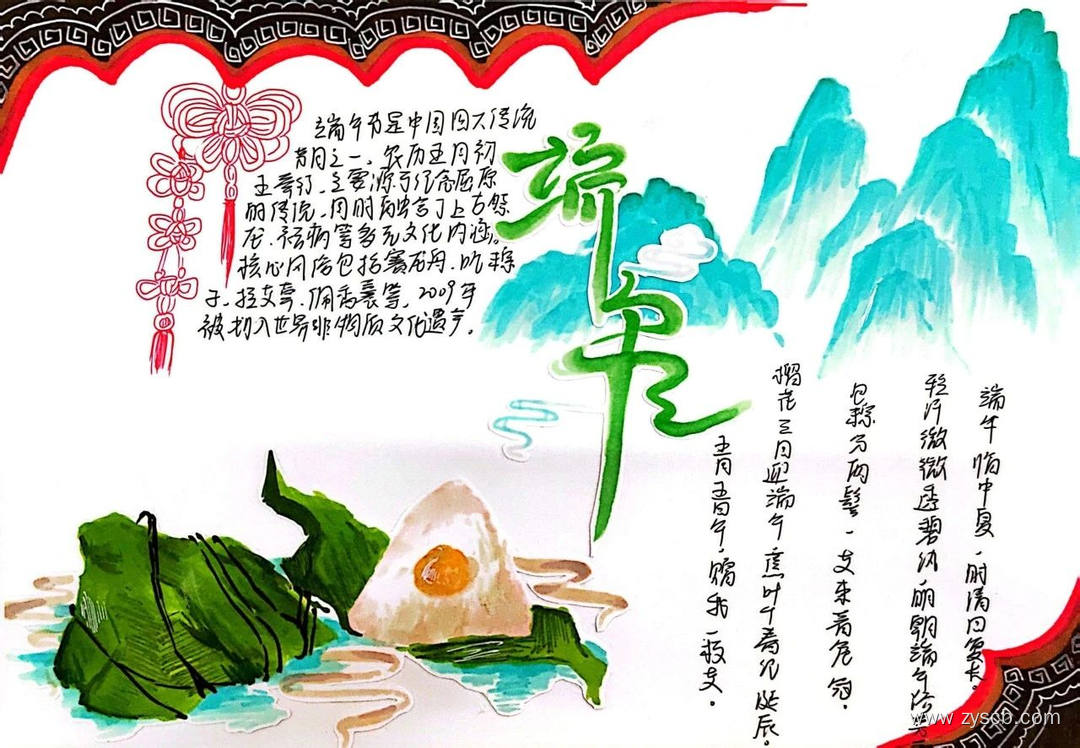 端午节是中国四大传统
节日之一，农历五月初
五举行，主要源于纪念屈原
的传说，同时融合了上古祭
龙、祛病等多元文化内涵。
核心风俗包括赛龙舟、吃粽
子、挂艾草、佩香囊等，2009年
被列入世界非物质文化遗产。
端午
端午临中夏，时清日复长。
轻汗微微透碧纨，明朝端午浴
包粽分两髻，艾束着危冠。
榴花三日迎端午，蕉叶千春纪诞辰。
五月五日午，赠我一枝艾。
www.zysob.com